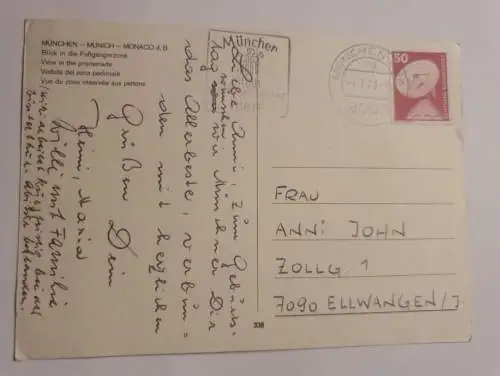 MÜNCHEN – MUNICH – MONACO d. B.
Blick in die Fußgängerzone
View in the promenade
Veduta del zona pedonale
Vue du zone réservée aux piétons
Liebe Anni, zum Geburts-
tag wünschen wir Münchner Dir
das Allerbeste, verbun-
den mit herzlichen
Grüßen Dein
Heini, Maria
Willi mit Familie
München
MÜNCHEN
800
50
FRAU
ANNI JOHN
ZOLLG. 1
7090 ELLWANGEN/J.
338